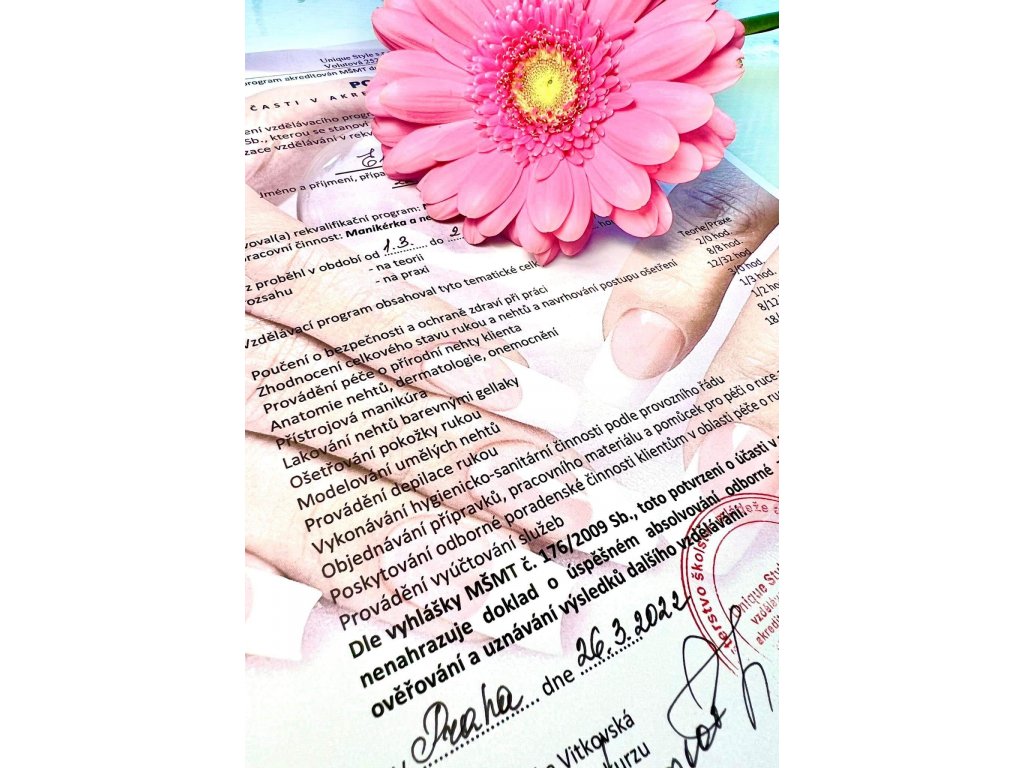 Unique Style s.
Volutová 252
program akreditován MŠMT d
PO
ČASTI V AKRE
ení vzdělávacího prog
Sb., kterou se stanoví
zace vzdělávání v rekv
méno a příjmení, přípa
voval(a) rekvalifikační program:
pracovní činnost: Manikérka a ne
z proběhl v období od 1.3. do 2
ozsahu - na teorii
- na praxi
Teorie/Praxe
vzdělávací program obsahoval tyto tematické celk
2/0 hod.
8/8 hod.
12/32 hod.
3/0 hod.
1/3 hod.
1/2 ho
8/12
18/
Poučení o bezpečnosti a ochraně zdraví při práci
Zhodnocení celkového stavu rukou a nehtů a navrhování postupu ošetření
Provádění péče o přírodní nehty klienta
Anatomie nehtů, dermatologie, onemocnění
Přístrojová manikúra
Lakování nehtů barevnými gellaky
Ošetřování pokožky rukou
Modelování umělých nehtů
Provádění depilace rukou
Vykonávání hygienicko-sanitární činnosti podle provozního řádu
Objednávání přípravků, pracovního materiálu a pomůcek pro péči o ruce
Poskytování odborné poradenské činnosti klientům v oblasti péče o ru
Provádění vyúčtování služeb
Dle vyhlášky MŠMT č. 176/2009 Sb., toto potvrzení o účasti v
nenahrazuje doklad o úspěšném absolvování odborné
ověřování a uznávání výsledků dalšího vzdělávání.
Praha dne 26.3.2022
Vitkovská
kurzu
terstvo školst mládeže
Unique Sty
vzděláv
akredit